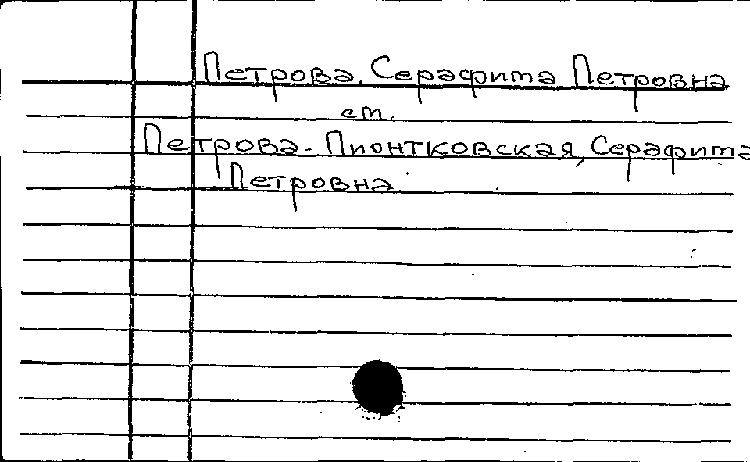 Петрова, Серафита Петровна
см.
Петрова-Пионтковская, Серафита
Петровна